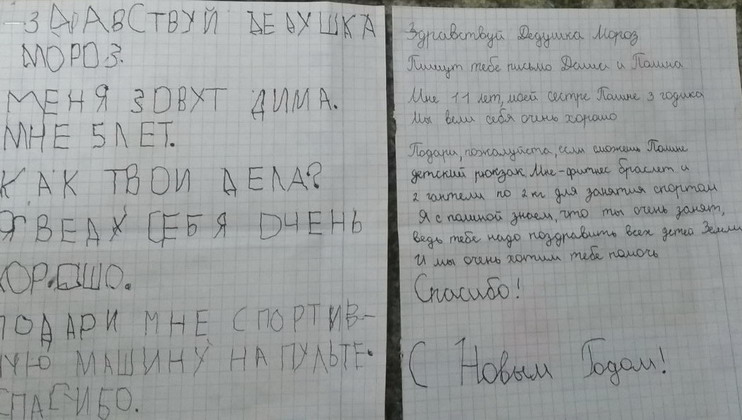 ЗДРАВСТВУЙ ДЕДУШКА
МОРОЗ.
МЕНЯ ЗОВУТ ДИМА.
МНЕ 5 ЛЕТ.
КАК ТВОИ ДЕЛА?
Я ВЕДУ СЕБЯ ОЧЕНЬ
ХОРОШО.
ПОДАРИ МНЕ СПОРТИВ-
НУЮ МАШИНУ НА ПУЛЬТЕ.
СПАСИБО.
Здравствуй Дедушка Мороз
Пишут тебе письмо Денис и Полина
Мне 11 лет, моей сестре Полине 3 годика
Мы вели себя очень хорошо
Подари, пожалуйста, если сможешь Полине
детский рюкзак Мне-фитнес браслет и
2 гантели по 2 кг для занятия спортом
Я с полиной знаем, что ты очень занят,
ведь тебе надо поздравить всех детей Земли
И мы очень хотим тебе помочь
Спасибо!
С Новым Годом!